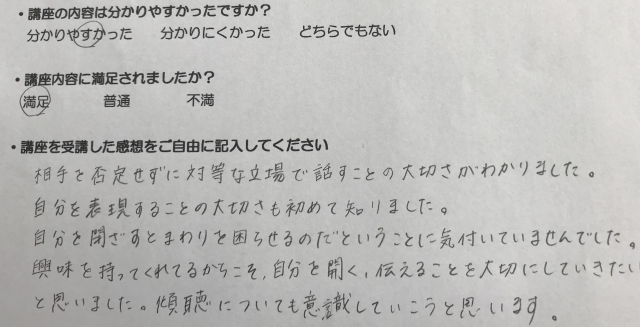 ・講座の内容は分かりやすかったですか？
分かりやすかった　分かりにくかった　どちらでもない
・講座内容に満足されましたか？
満足　普通　不満
・講座を受講した感想をご自由に記入してください
相手を否定せずに対等な立場で話すことの大切さがわかりました。
自分を表現することの大切さも初めて知りました。
自分を閉ざすとまわりを困らせるのだということに気付いていませんでした。
興味を持ってくれてるからこそ、自分を開く、伝えることを大切にしていきたい
と思いました。傾聴についても意識していこうと思います。